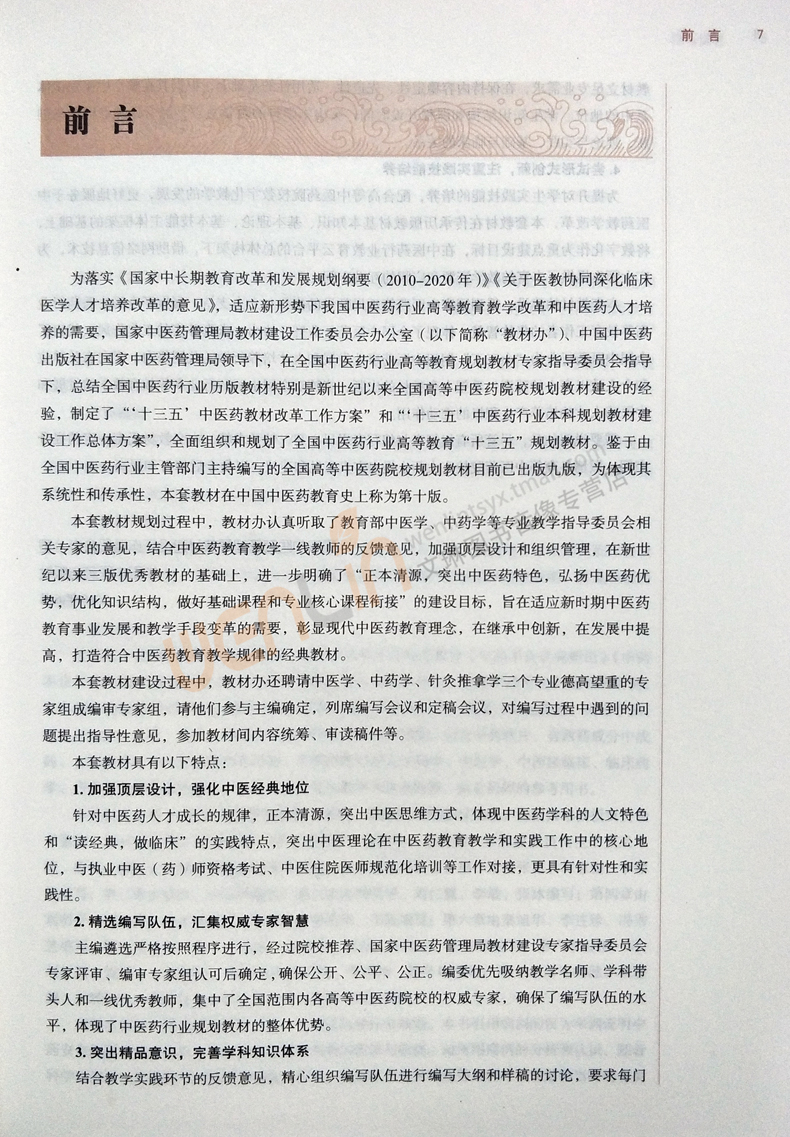 前 言 7
前 言
4. 尝试形式创新，注重实践技能培养
为落实《国家中长期教育改革和发展规划纲要（2010-2020 年）》《关于医教协同深化临床
医学人才培养改革的意见》，适应新形势下我国中医药行业高等教育教学改革和中医药人才培
养的需要，国家中医药管理局教材建设工作委员会办公室（以下简称“教材办”）、中国中医药
出版社在国家中医药管理局领导下，在全国中医药行业高等教育规划教材专家指导委员会指导
下，总结全国中医药行业历版教材特别是新世纪以来全国高等中医药院校规划教材建设的经
验，制定了“‘十三五’中医药教材改革工作方案”和“‘十三五’中医药行业本科规划教材建
设工作总体方案”，全面组织和规划了全国中医药行业高等教育“十三五”规划教材。鉴于由
全国中医药行业主管部门主持编写的全国高等中医药院校规划教材目前已出版九版，为体现其
系统性和传承性，本套教材在中国中医药教育史上称为第十版。
本套教材规划过程中，教材办认真听取了教育部中医学、中药学等专业教学指导委员会相
关专家的意见，结合中医药教育教学一线教师的反馈意见，加强顶层设计和组织管理，在新世
纪以来三版优秀教材的基础上，进一步明确了“正本清源，突出中医药特色，弘扬中医药优
势，优化知识结构，做好基础课程和专业核心课程衔接”的建设目标，旨在适应新时期中医药
教育事业发展和教学手段变革的需要，彰显现代中医药教育理念，在继承中创新，在发展中提
高，打造符合中医药教育教学规律的经典教材。
本套教材建设过程中，教材办还聘请中医学、中药学、针灸推拿学三个专业德高望重的专
家组成编审专家组，请他们参与主编确定，列席编写会议和定稿会议，对编写过程中遇到的问
题提出指导性意见，参加教材间内容统筹、审读稿件等。
本套教材具有以下特点：
1. 加强顶层设计，强化中医经典地位
针对中医药人才成长的规律，正本清源，突出中医思维方式，体现中医药学科的人文特色
和“读经典，做临床”的实践特点，突出中医理论在中医药教育教学和实践工作中的核心地
位，与执业中医（药）师资格考试、中医住院医师规范化培训等工作对接，更具有针对性和实
践性。
2. 精选编写队伍，汇集权威专家智慧
主编遴选严格按照程序进行，经过院校推荐、国家中医药管理局教材建设专家指导委员会
专家评审、编审专家组认可后确定，确保公开、公平、公正。编委优先吸纳教学名师、学科带
头人和一线优秀教师，集中了全国范围内各高等中医药院校的权威专家，确保了编写队伍的水
平，体现了中医药行业规划教材的整体优势。
3. 突出精品意识，完善学科知识体系
结合教学实践环节的反馈意见，精心组织编写队伍进行编写大纲和样稿的讨论，要求每门
wenlin
wenlintsyx.tmall.com
文琳图书音像专营店